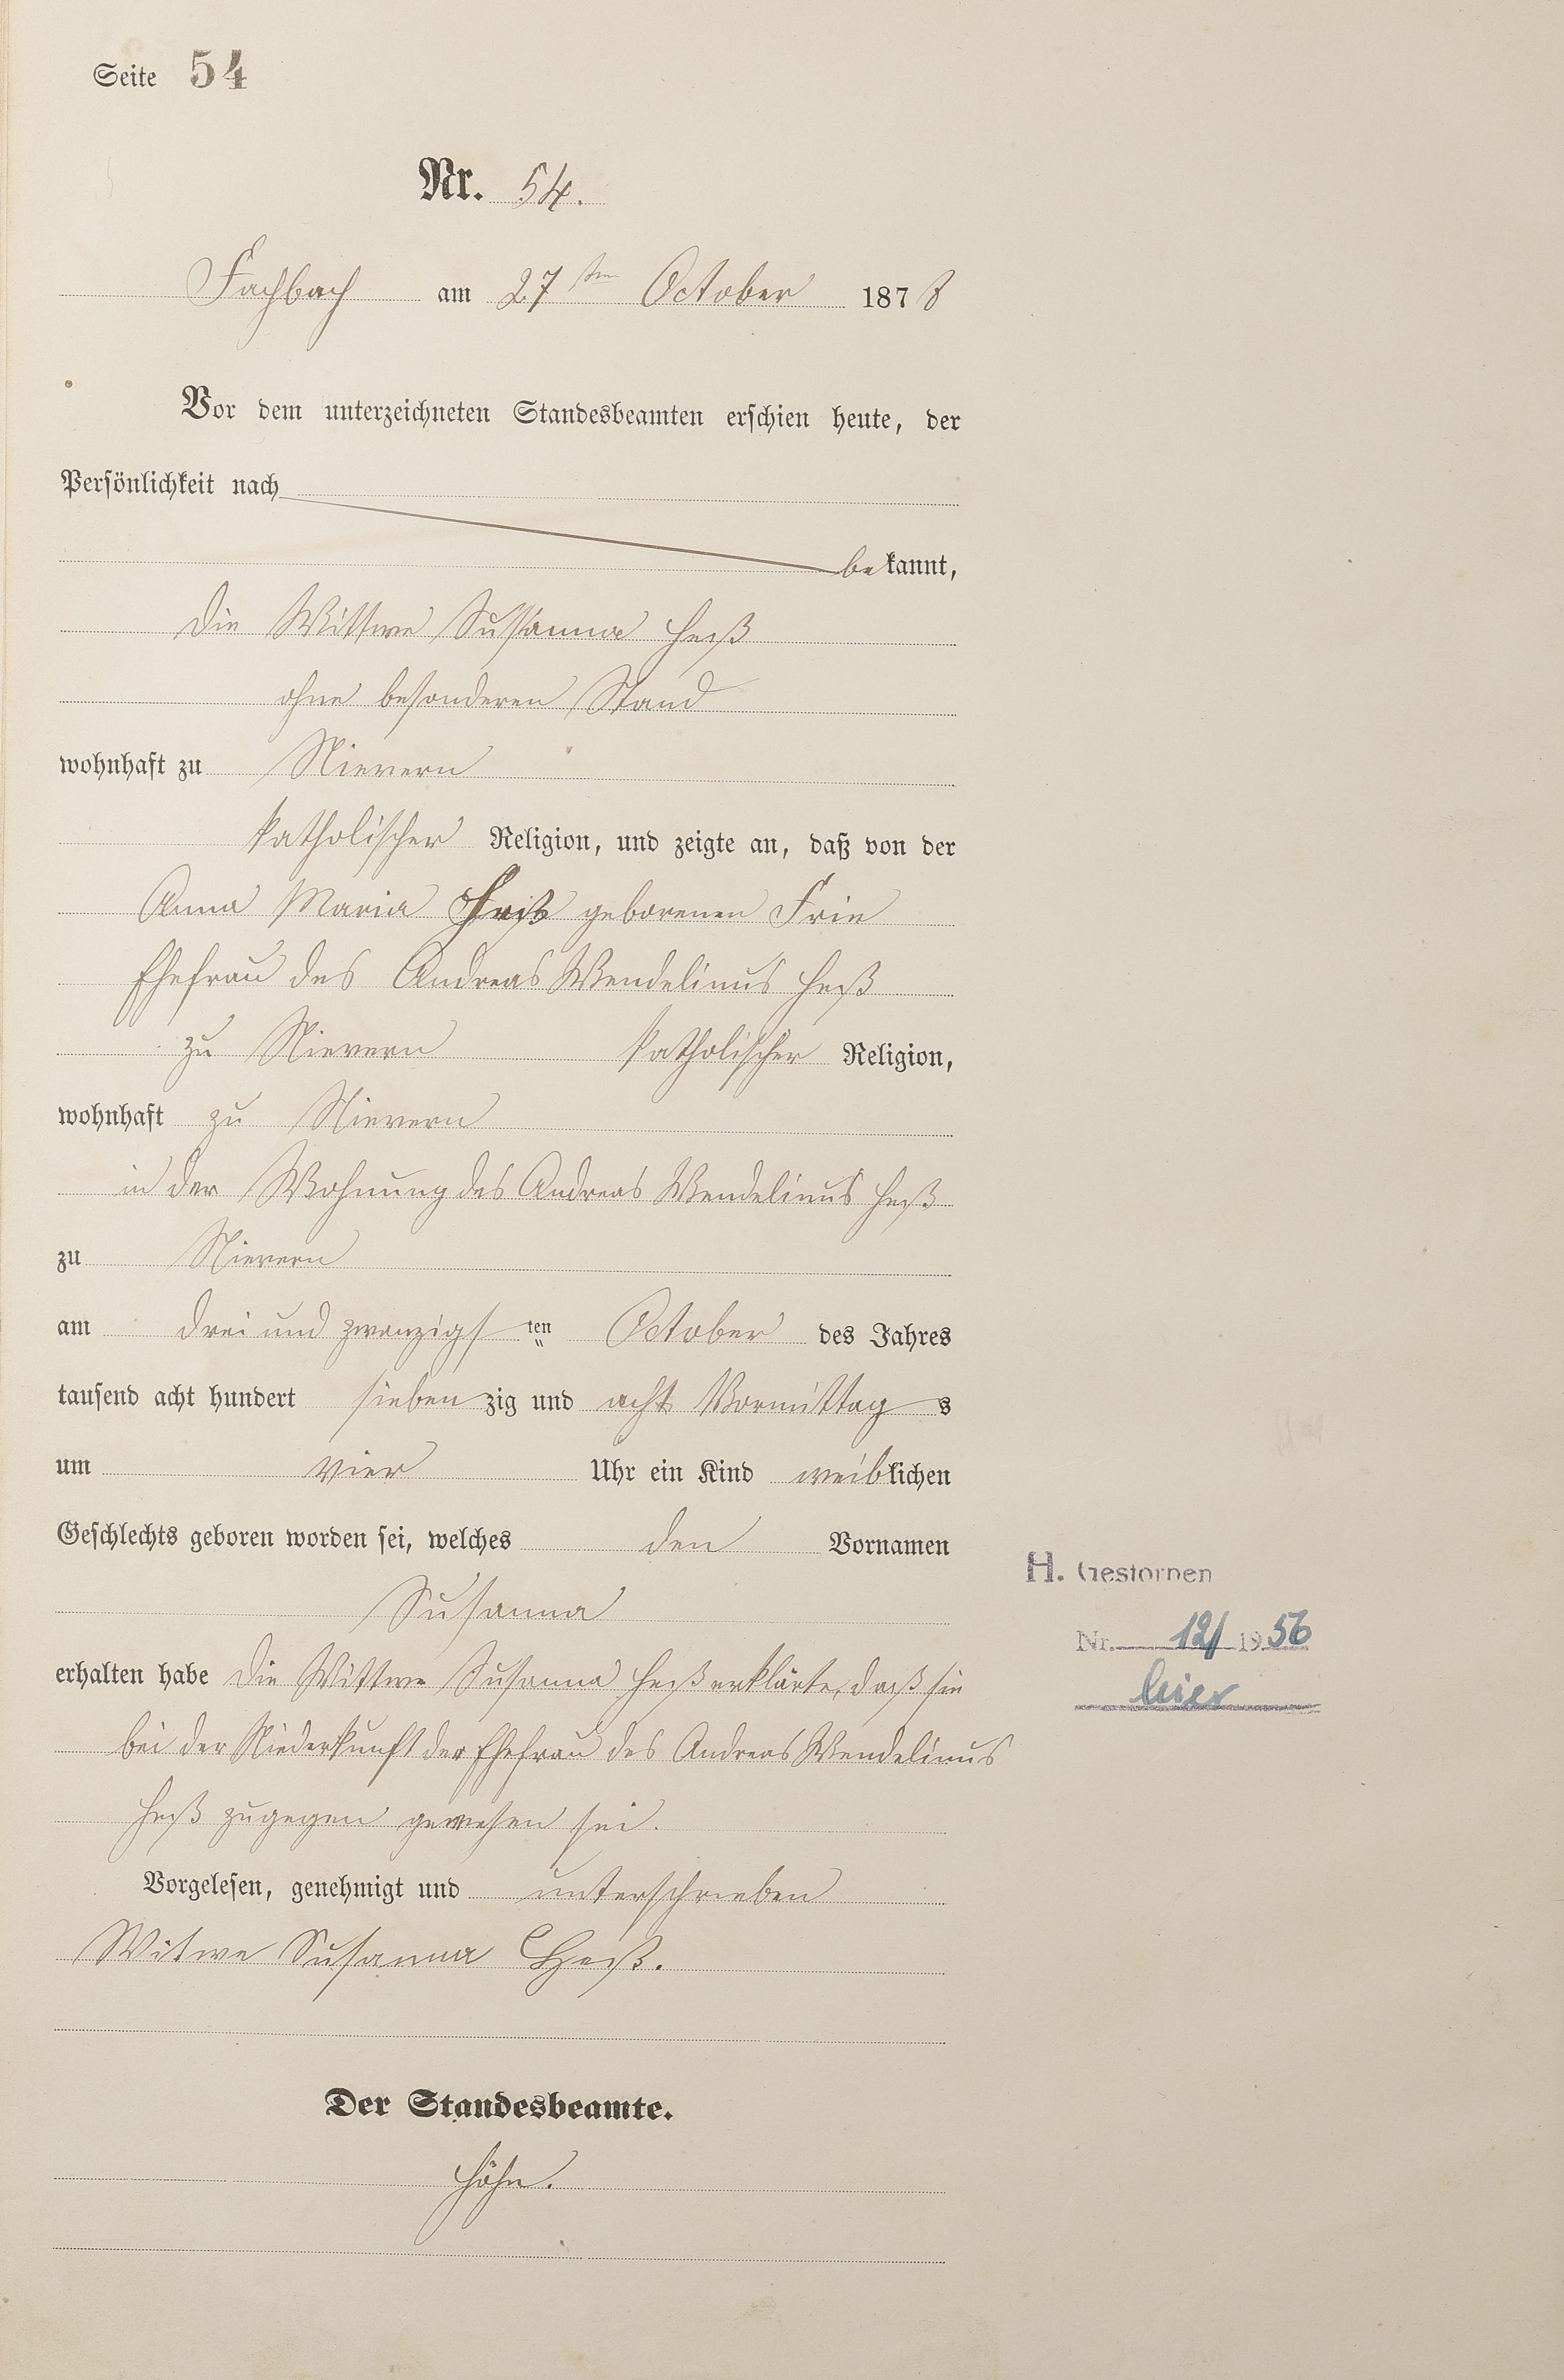 Seite 54
Nr. 54.
Fachbach am 27ten October 1878
Vor dem unterzeichneten Standesbeamten erschien heute, der
Persönlichkeit nach
bekannt,
die Wittwe Susanna Heß
ohne besonderen Stand
wohnhaft zu Nievern
katholischer Religion, und zeigte an, daß von der
Anna Maria Heß geborenen Frin
Ehefrau des Andreas Wendelinus Heß
zu Nievern katholischer Religion,
wohnhaft zu Nievern
in der Wohnung des Andreas Wendelinus Heß
zu Nievern
am drei und zwanzigsten October des Jahres
tausend acht hundert siebenzig und acht Vormittags
um vier Uhr ein Kind weiblichen
Geschlechts geboren worden sei, welches den Vornamen
Susanna
erhalten habe die Wittwe Susanna Heß erklärte, daß sie
bei der Niederkunft der Ehefrau des Andreas Wendelinus
Heß zugegen gewesen sei.
Vorgelesen, genehmigt und unterschrieben
Witwe Susanna Heß.
Der Standesbeamte.
Höhn.
H. Gestorben
Nr. 12/ 1956
hier